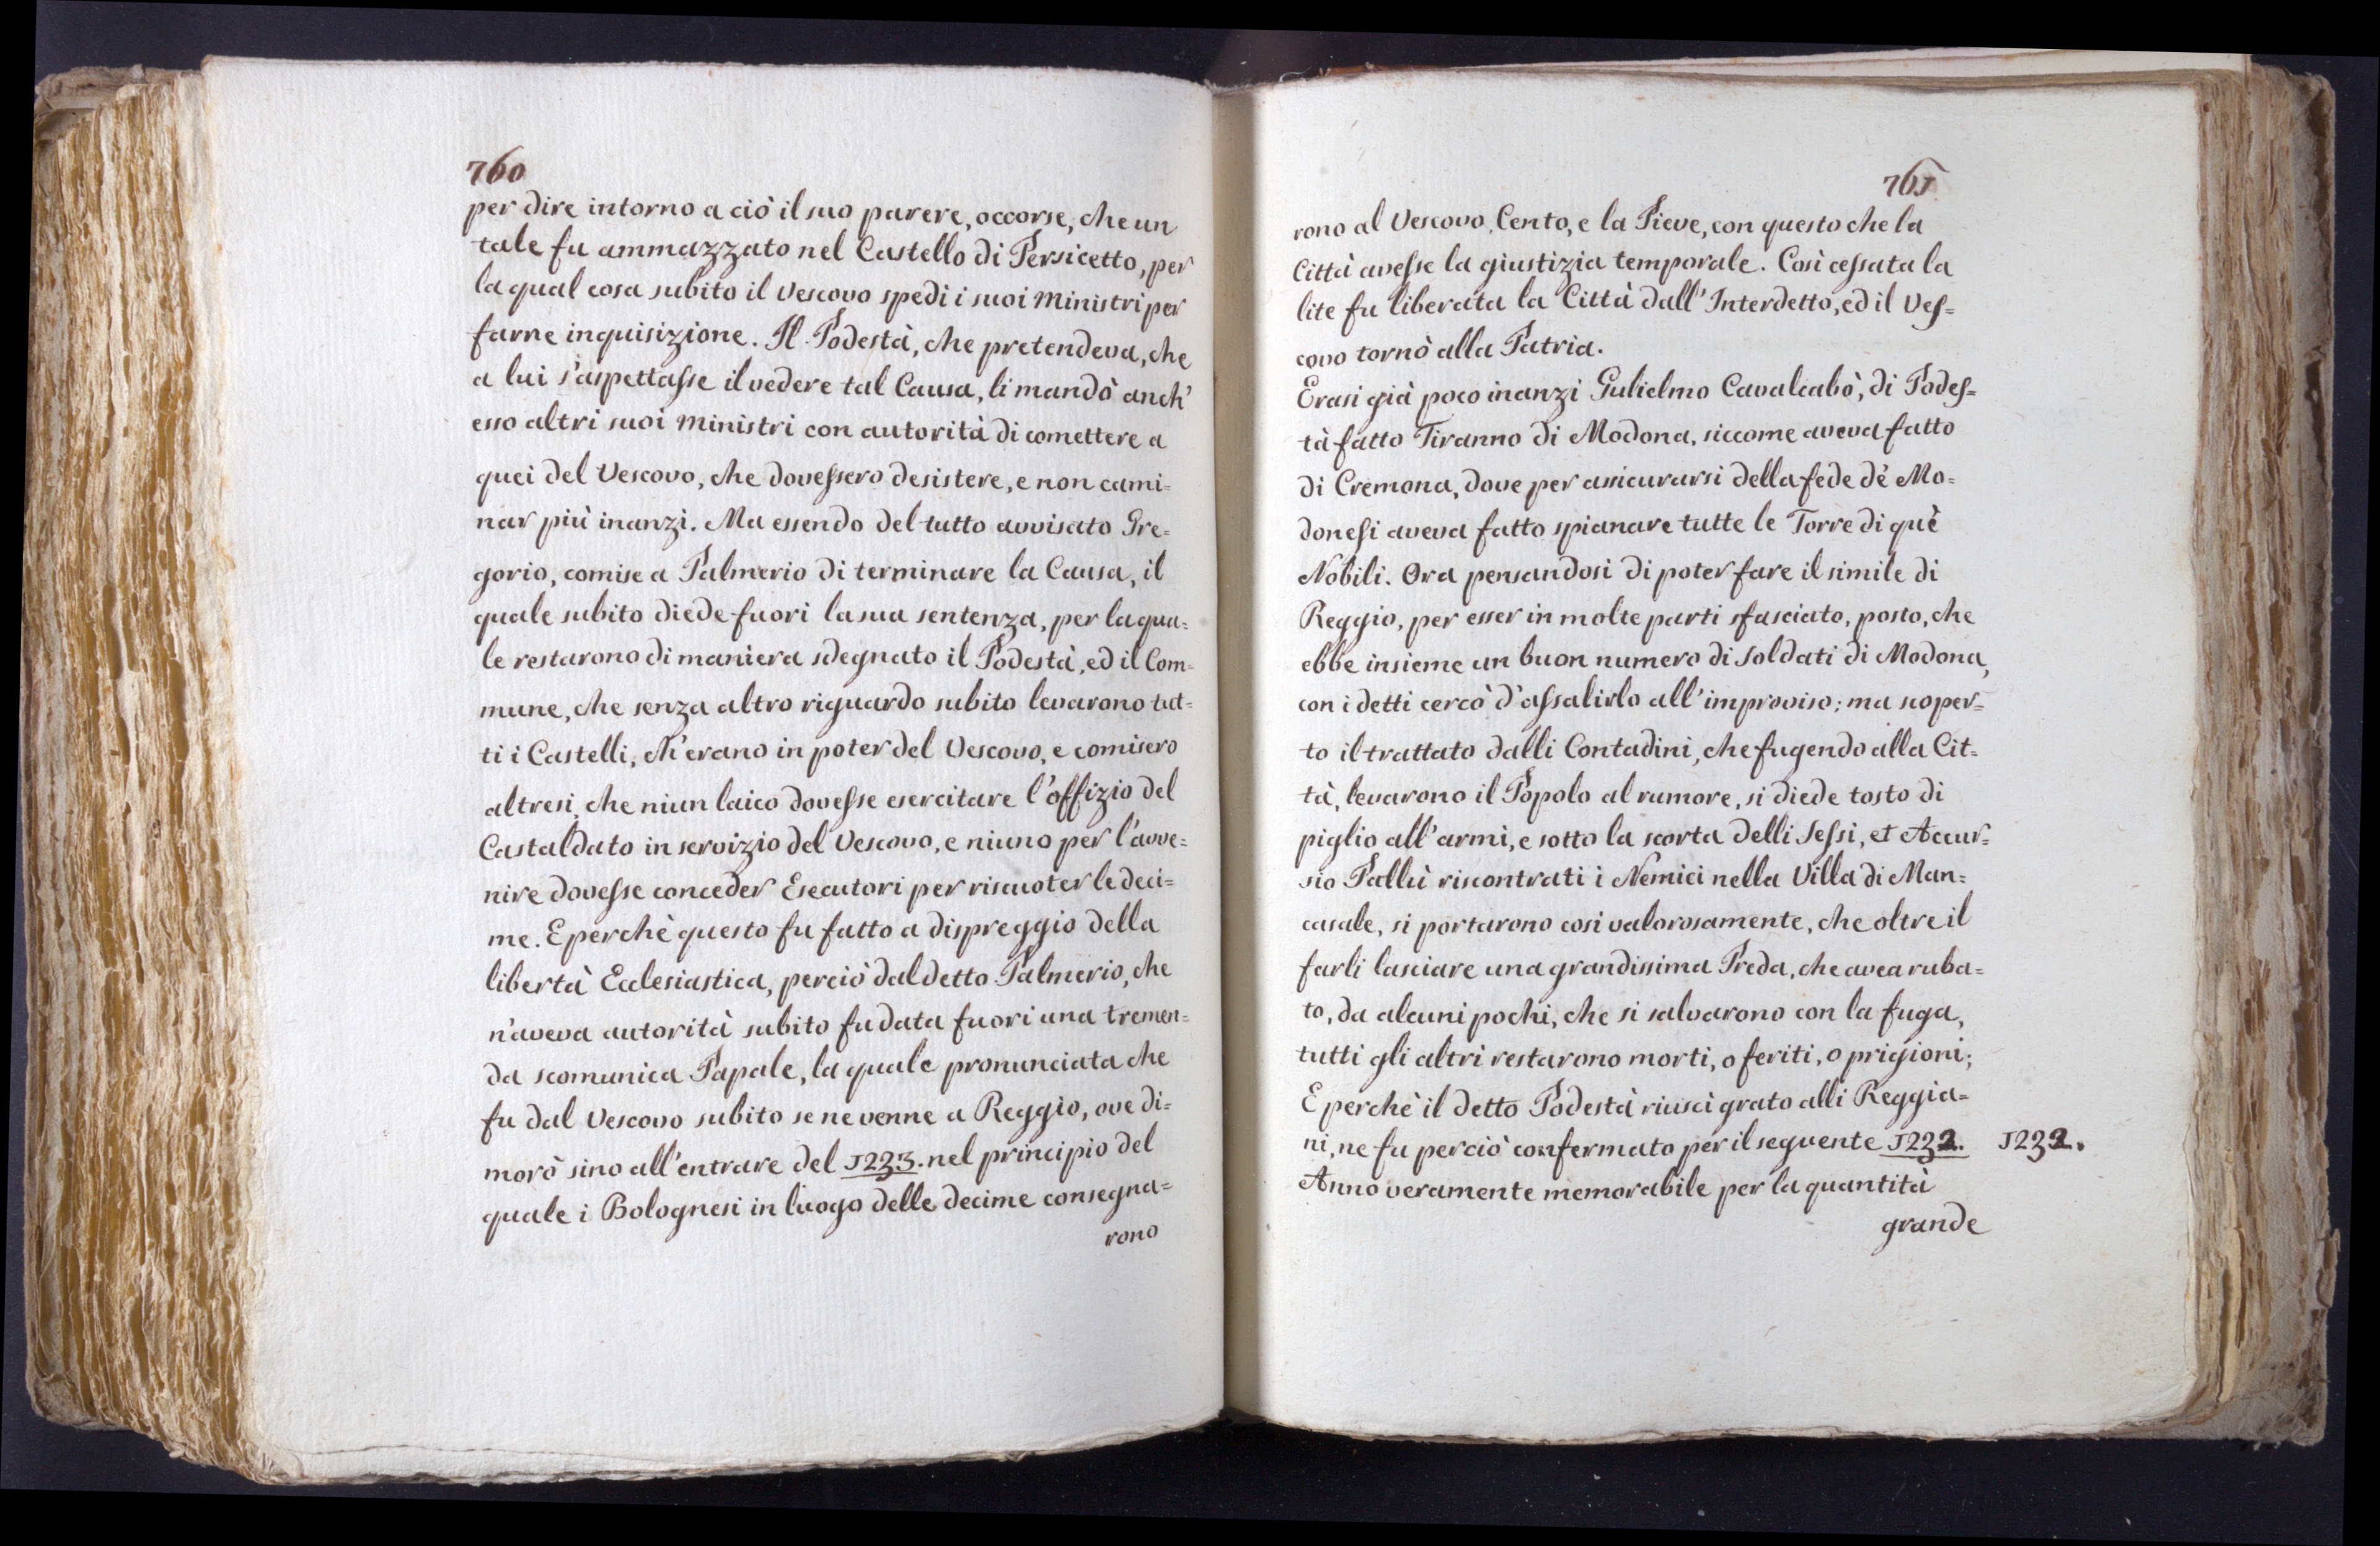 760
per dire intorno a ciò il suo parere, occorse, che un
tale fu ammazzato nel Castello di Persicetto, per
la qual cosa subito il Vescovo spedì i suoi Ministri per
farne inquisizione. Il Podestà, che pretendeva, che
a lui s'aspettasse il vedere tal Causa, li mandò anch'
esso altri suoi Ministri con autorità di comettere a
quei del Vescovo, che dovessero desistere, e non cami=
nar più inanzi. Ma essendo del tutto avvisato Gre=
gorio, comise a Palmerio di terminare la Causa, il
quale subito diede fuori la sua sentenza, per la qua=
le restarono di maniera sdegnato il Podestà, ed il Com=
mune, che senza altro riguardo subito levarono tut=
ti i Castelli, ch'erano in poter del Vescovo, e comisero
altresi, che niun laico dovesse esercitare l'offizio del
Castaldato in servizio del Vescovo, e niuno per l'avve=
nire dovesse conceder Esecutori per riscuoter le deci=
me. E perchè questo fu fatto a dispreggio della
libertà Ecclesiastica, perciò dal detto Palmerio, che
n'aveva autorità subito fu data fuori una tremen=
da scomunica Papale, la quale pronunciata che
fu dal Vescovo subito se ne venne a Reggio, ove di=
morò sino all'entrare del 1233. nel principio del
quale i Bolognesi in luogo delle decime consegna=
rono
761
rono al Vescovo Cento, e la Pieve, con questo che la
Città avesse la giustizia temporale. Così cessata la
lite fu liberata la Città dall'Interdetto, ed il Ves=
covo tornò alla Patria.
Erasi già poco inanzi Gulielmo Cavalcabò, di Podes=
tà fatto Tiranno di Modona, siccome aveva fatto
di Cremona, dove per assicurarsi della fede dè Mo=
donesi aveva fatto spianare tutte le Torre di què
Nobili. Ora pensandosi di poter fare il simile di
Reggio, per esser in molte parti sfasciato, posto, che
ebbe insieme un buon numero di Soldati di Modona,
con i detti cercò d'assalirlo all'improviso; ma scoper=
to il trattato dalli Contadini, che fugendo alla Cit=
tà, levarono il Popolo al rumore, si diede tosto di
piglio all'armi, e sotto la scorta delli Sessi, et Accur=
sio Pallù riscontrati i Nemici nella Villa di Man=
casale, si portarono così valorosamente, che oltre il
farli lasciare una grandissima Preda, che avea ruba=
to, da alcuni pochi, che si salvarono con la fuga,
tutti gli altri restarono morti, o feriti, o prigioni;
E perchè il detto Podestà riuscì grato alli Reggia=
ni, ne fu perciò confermato per il seguente 1232. 1232.
Anno veramente memorabile per la quantità
grande